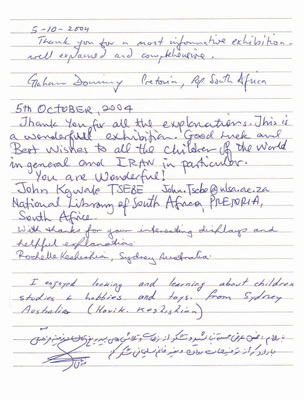 5-10-2004
Thank you for a most informative exhibition.
well explained and comprehensive.
Graham Dominy Pretoria, Rep South Africa
5th OCTOBER, 2004
Thank you for all the explanations. This is
a wonderful exhibition. Good luck and
Best Wishes to all the Children of the World
in general and IRAN in particular.
You are Wonderful!
John Kgwale TSEBE
National Library of South Africa, PRETORIA,
South Africa.
With thanks for your interesting displays and
helpful explanation
Rochelle Keshishian, Sydney Australia
I enjoyed looking and learning about children
studies & hobbies and toys. from Sydney
Australia (Harik Keshishian)